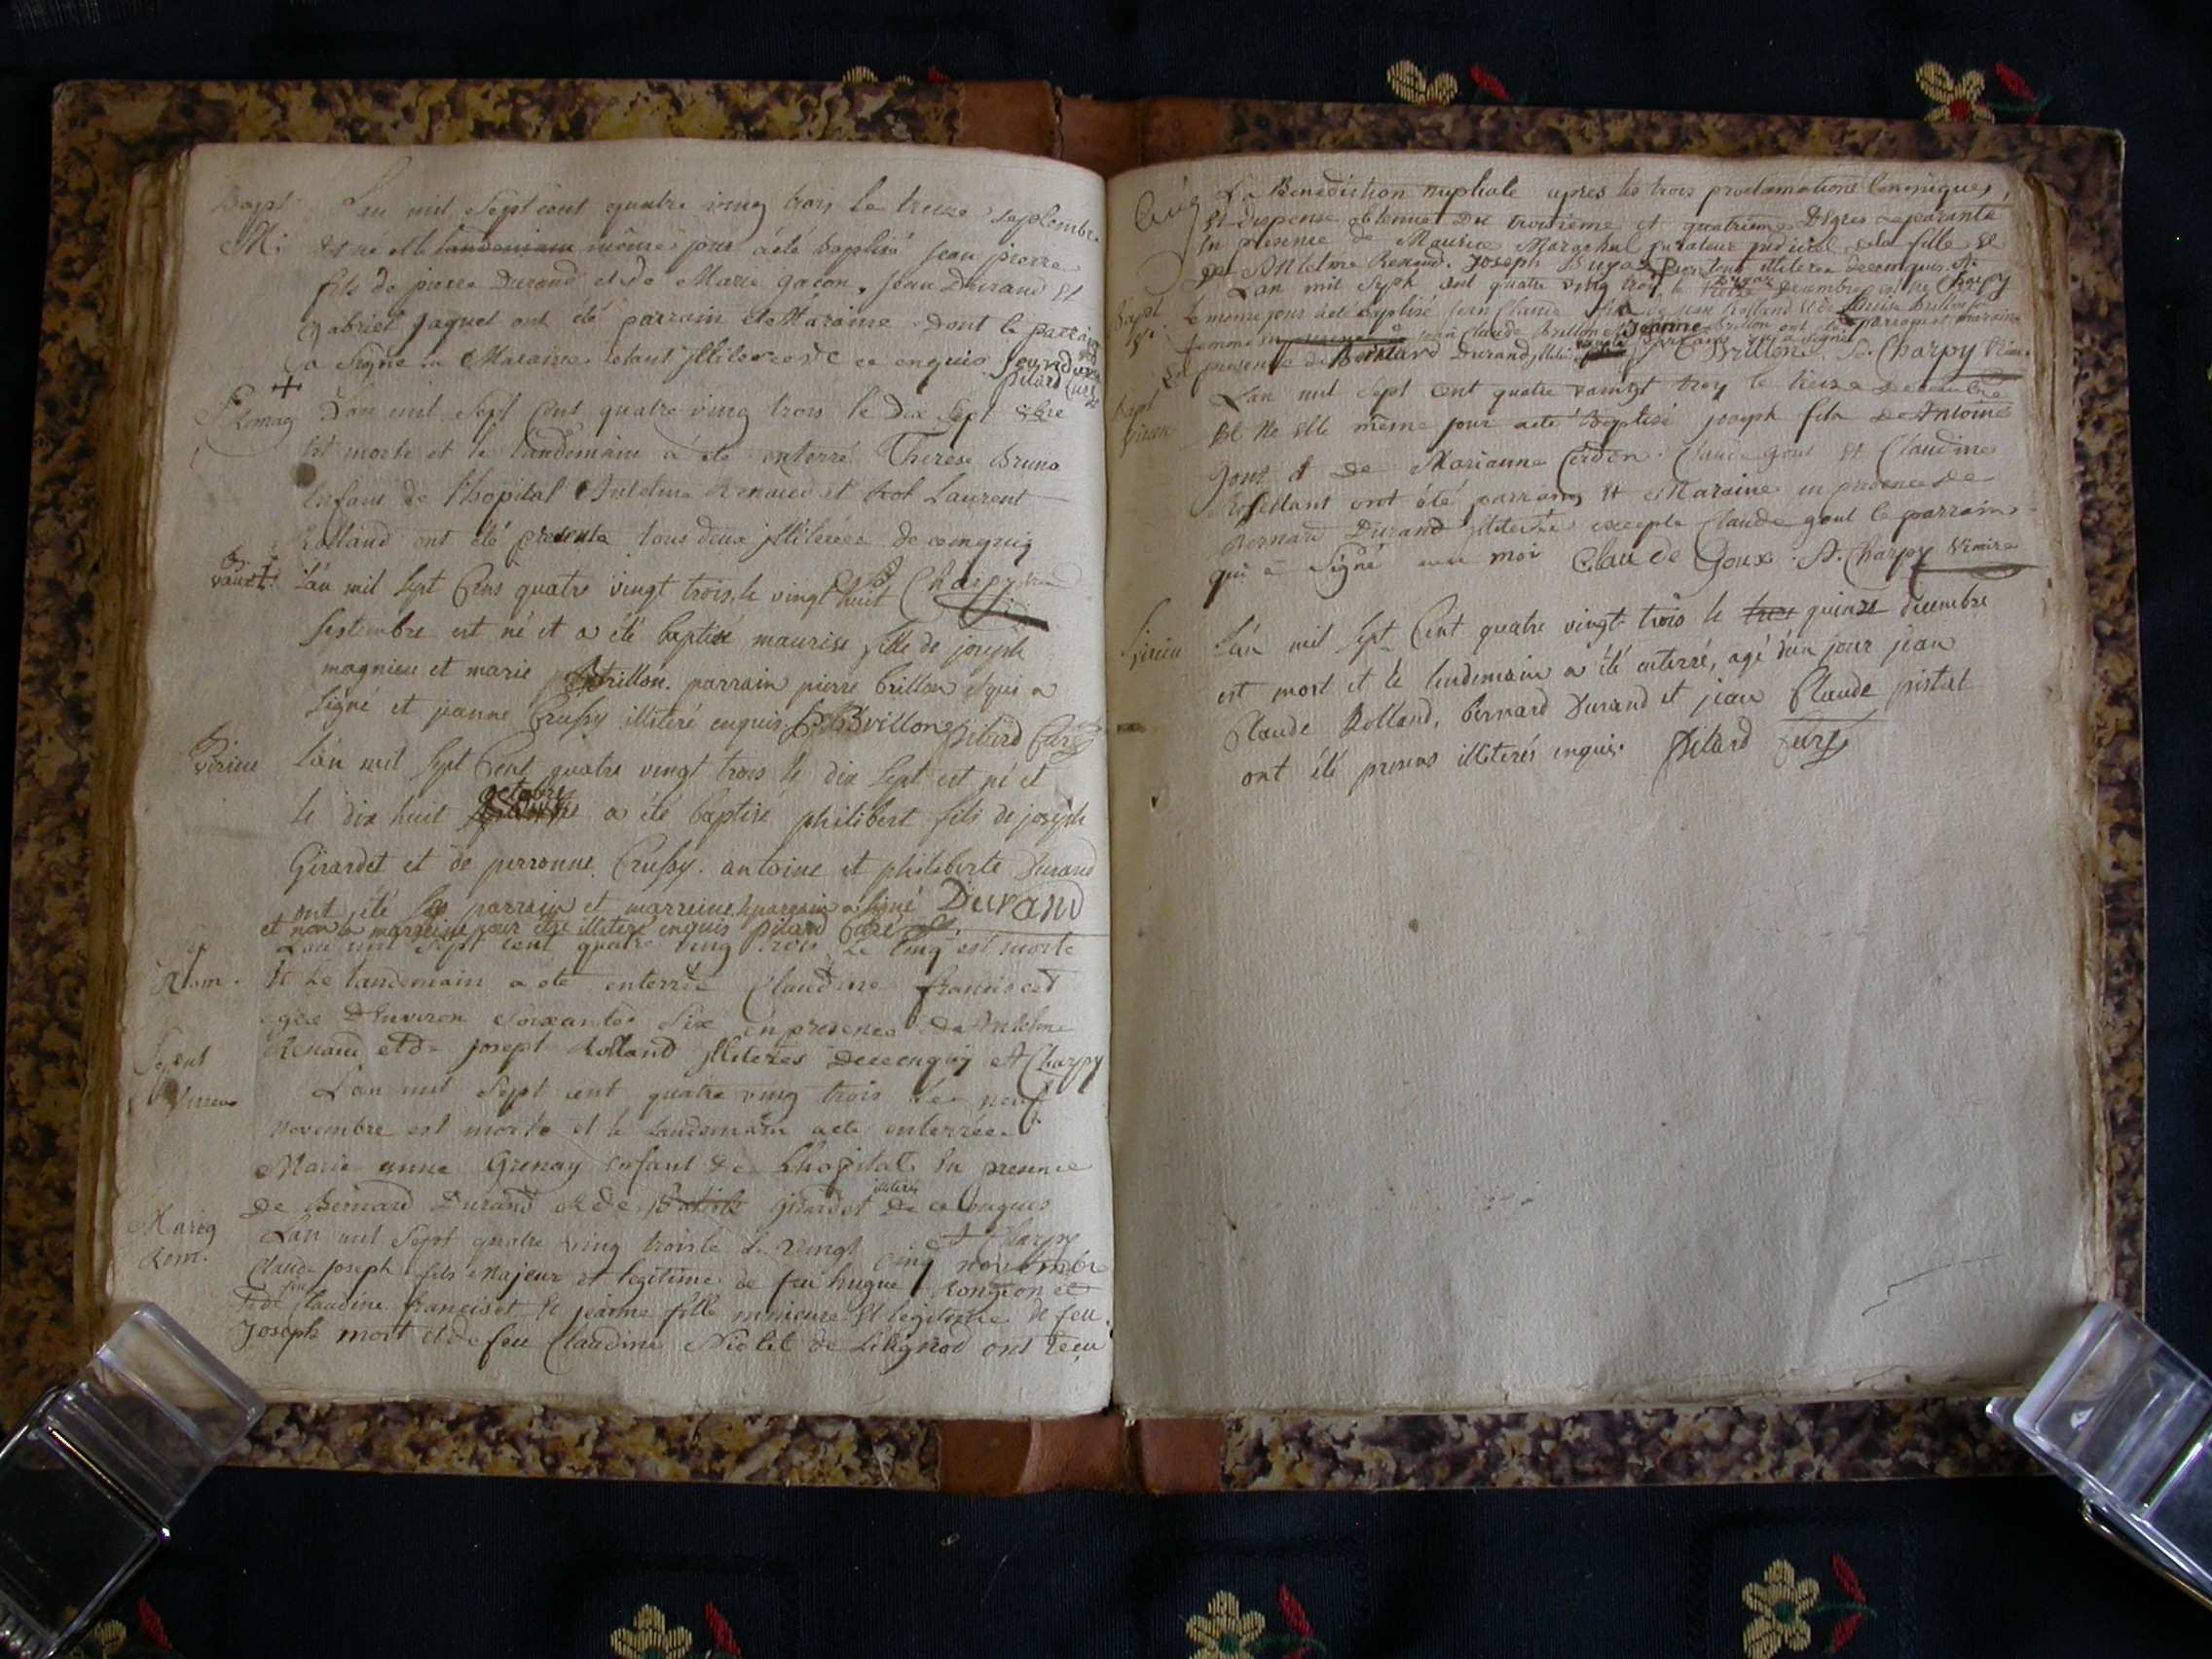 Bapt. L'an mil Sept cent quatre ving trois le treize septembre
Mi Est ne et le landemain même jour a été baptisé jean pierre
fils de pierre Durand et de Marie gacon. jean Durand Et
gabriel jaquet ont été parrain et Maraine dont le parrain
a Signé la Maraine étant illiterée de ce enquis
pilard Curé
Romag L'an mil Sept Cent quatre ving trois le dix Sept
Est morte et le landemain a été enterré Therese Bruno
Enfant de l'hopital Antelme Renaud et Laurent
Rolland ont été presents tous deux illiterés de ce enquis
L'an mil Sept Cens quatre vingt trois, le vingt huit Charpy
Septembre est né et a été baptisé maurise fille de joseph
magnieu et marie Brillon. parrain pierre brillon qui a
signé et jeanne Crussy illiteré enquis. P. Brillon pilard Curé
Virieu L'an mil Sept Cent quatre vingt trois le dix Sept est né et
octobre
le dix huit a été baptisé philibert fils de joseph
Girardet et de perronne Crussy. antoine et philiberte Durand
ont été parrain et marreine. le parrain a signé Durand
et non la marreine pour être illiteré enquis pilard Curé
L'an mil Sept cent quatre ving trois Le Cinq est morte
Rom. Et Le landemain a été enterrée Claudine franciscet
agée D'Environ Soixante Six En presence de Antelme
Renaud et de joseph Rolland illiterés de ce enquis A Charpy
Virieu L'an mil Sept cent quatre ving trois Le neuf
novembre est morte et le landemain a été enterrée
Marie anne Grenay enfant de L'hopital En presence
illiterés
De Bernard Durand et de girardet de ce Enquis
A Charpy
Mariag L'an mil Sept quatre ving trois le vingt cinq novembre
Rom. Claude joseph fils Majeur et legitime de feu hugue Rongeon et
feu
de Claudine franciscet Et jeanne fille mineure Et legitime de feu
Joseph mort et de feu Claudine Niolet de ont reçu
La Benediction nuptiale apres les trois proclamations Canoniques,
Et dispense obtenue Du troisieme et quatrieme Degres de paranté
En presence de Maurice Marechal Curateur judiciel de la fille Et
De Antelme Renaud. Joseph tous illiterés de ce enquis. A. Charpy
Bapt L'an mil Sept cent quatre ving trois le Decembre est né
Le meme jour a été Baptisé jean Claude fils de jean Rolland Et de Brillon
femme jean Claude Brillon et Jeanne Brillon ont été parrain et maraine
En presence de Bernard Durand Brillon. A. Charpy Vicaire
Bapt L'an mil Sept Cent quatre vaintgt trois le treize Decembre
Virieu Est Ne et le même jour a été Baptisé joseph fils de Antoine
gout et de Marianne Cerdon. Claude gout Et Claudine
ont été parrains Et Maraine en presence de
Bernard Durand illiterée excepté Claude gout le parrain
qui a Signé avec moi Claude Goux. A. Charpy Vicaire
Virieu L'an mil Sept Cent quatre vingt trois le quinze decembre
est mort et le lendemain a été enterré, agé d'un jour jean
Claude Rolland. bernard Durand et jean Claude pistal
ont été presens illiterés enquis. Pilard Curé